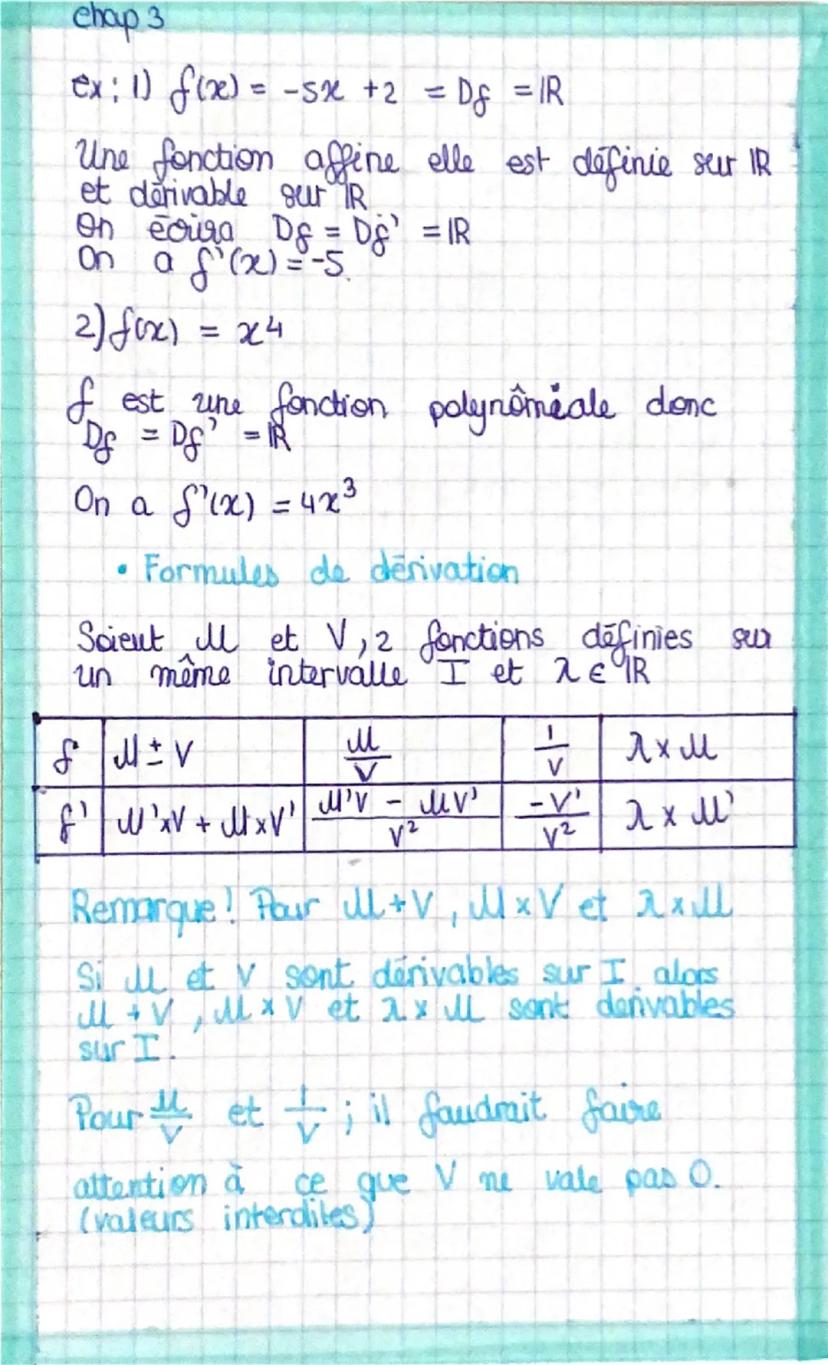 chap 3
ex : 1) f(x) = -5x +2 = Df = ℝ
Une fonction affine elle est définie sur ℝ
et dérivable sur ℝ
On écrira Df = Df' = ℝ
On a f'(x) = -5.
2) f(x) = x4
f est une fonction polynômiale donc
Df = Df' = ℝ
On a f'(x) = 4x³
• Formules de dérivation
Soient U et V, 2 fonctions définies sur
un même intervalle I et λ ∈ ℝ
f | U ± V | U/V | 1/V | λ x U
f' | U'xV + UxV' | U'V - UV' / V² | -V'/V² | λ x U'
Remarque ! Pour U+V, UxV et λxU
Si U et V sont dérivables sur I alors
U + V, U x V et λ x U sont derivables
sur I.
Pour U/V et 1/V ; il faudrait faire
attention à ce que V ne vale pas 0.
(valeurs interdites)